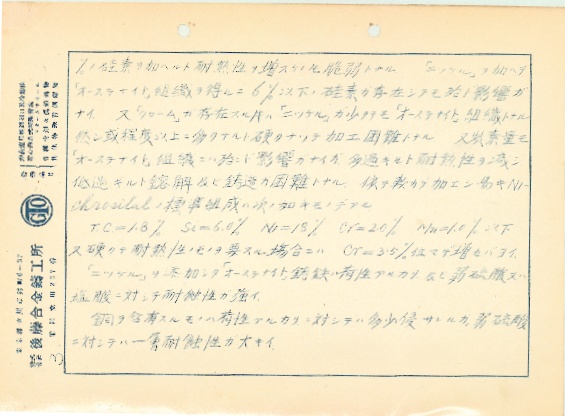 %ノ硅素ヲ加ヘルト耐熱性ヲ増スケレモ脆弱トナル 「ニッケル」ヲ加ヘテ
「オーステナイト」組織ヲ得ルニ 6%以下ノ硅素ガ存在シテモ殆ド影響ガ
ナイ. 又「クローム」ガ存在スル時ハ「ニッケル」ガ少クテモ「オーステナイト」組織トナル
然シ或程度以上ニ多クナルト硬クナッテ加工困難トナル 又炭素量モ
「オーステナイト」組織ニハ殆ンド影響ガナイガ多過ギルト耐熱性ヲ減ジ
低過ギルト鎔解及ビ鋳造ガ困難トナル. 依テ軟カク加工シ易キNi-
chrosilalノ標準組成ハ次ノ如キモノデアル
T.C=1.8% Si=6.0% Ni=18% Cr=2.0% Mn=1.0%以下
又硬クテ耐熱性ノモノヲ要スル場合ニハ Cr=3.5%位マデ増セバヨイ.
「ニッケル」ヲ添加シタ「オーステナイト」鋳鉄ハ苛性アルカリ及ビ弱硫酸又ハ
塩酸ニ対シテ耐蝕性ガ強イ.
銅ヲ含有スルモノハ苛性アルカリニ対シテハ多少侵サレルガ, 弱硫酸
ニ対シテハ一層耐蝕性ガ大キイ.
GIO
後藤合金鋳工所
3